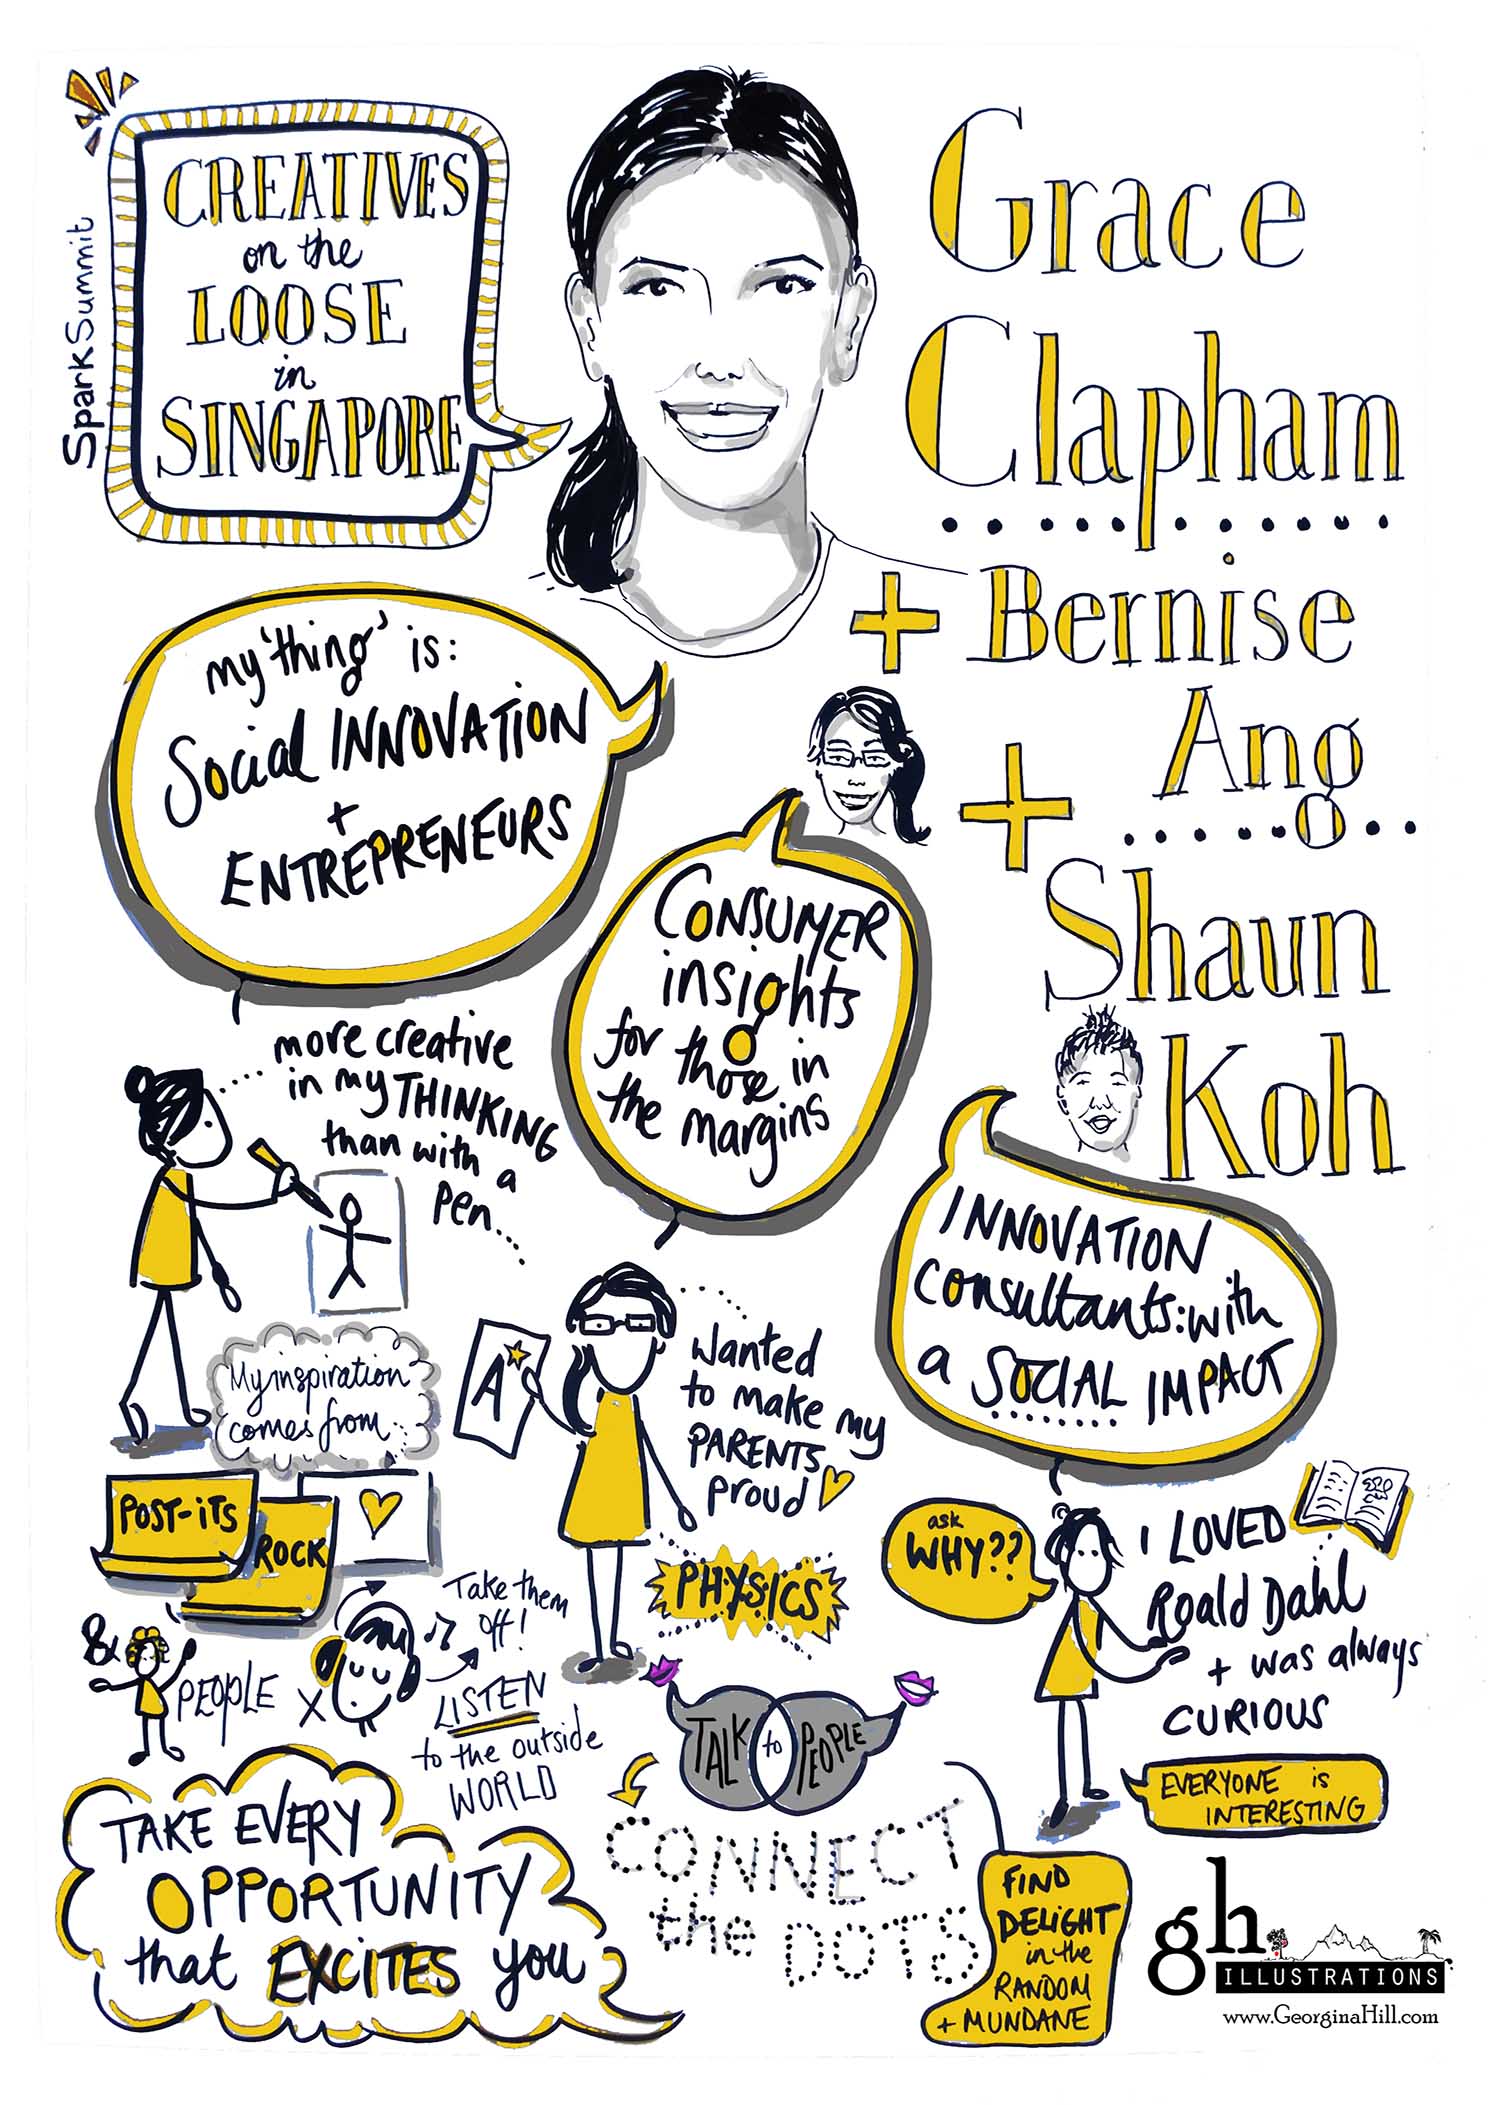 SparkSummit
CREATIVES
on the
LOOSE
in
SINGAPORE
Grace
Clapham
+ Bernise
+ Ang
Shaun
Koh
my 'thing' is:
Social INNOVATION
+
ENTREPRENEURS
CONSUMER
insights
for those in
the margins
INNOVATION
consultants: with
a SOCIAL IMPACT
more creative
in my THINKING
than with a
pen.
My inspiration
comes from
POST-ITS
ROCK
& PEOPLE
A
Wanted
to make my
PARENTS
proud
PHYSICS
X
Take them
off!
LISTEN
to the outside
WORLD
ask
WHY??
I LOVED
Roald Dahl
+ was always
CURIOUS
EVERYONE is
INTERESTING
TALK to PEOPLE
CONNECT
the DOTS
FIND
DELIGHT
in the
RANDOM
+ MUNDANE
TAKE EVERY
OPPORTUNITY
that EXCITES you
gh
ILLUSTRATIONS
www.GeorginaHill.com